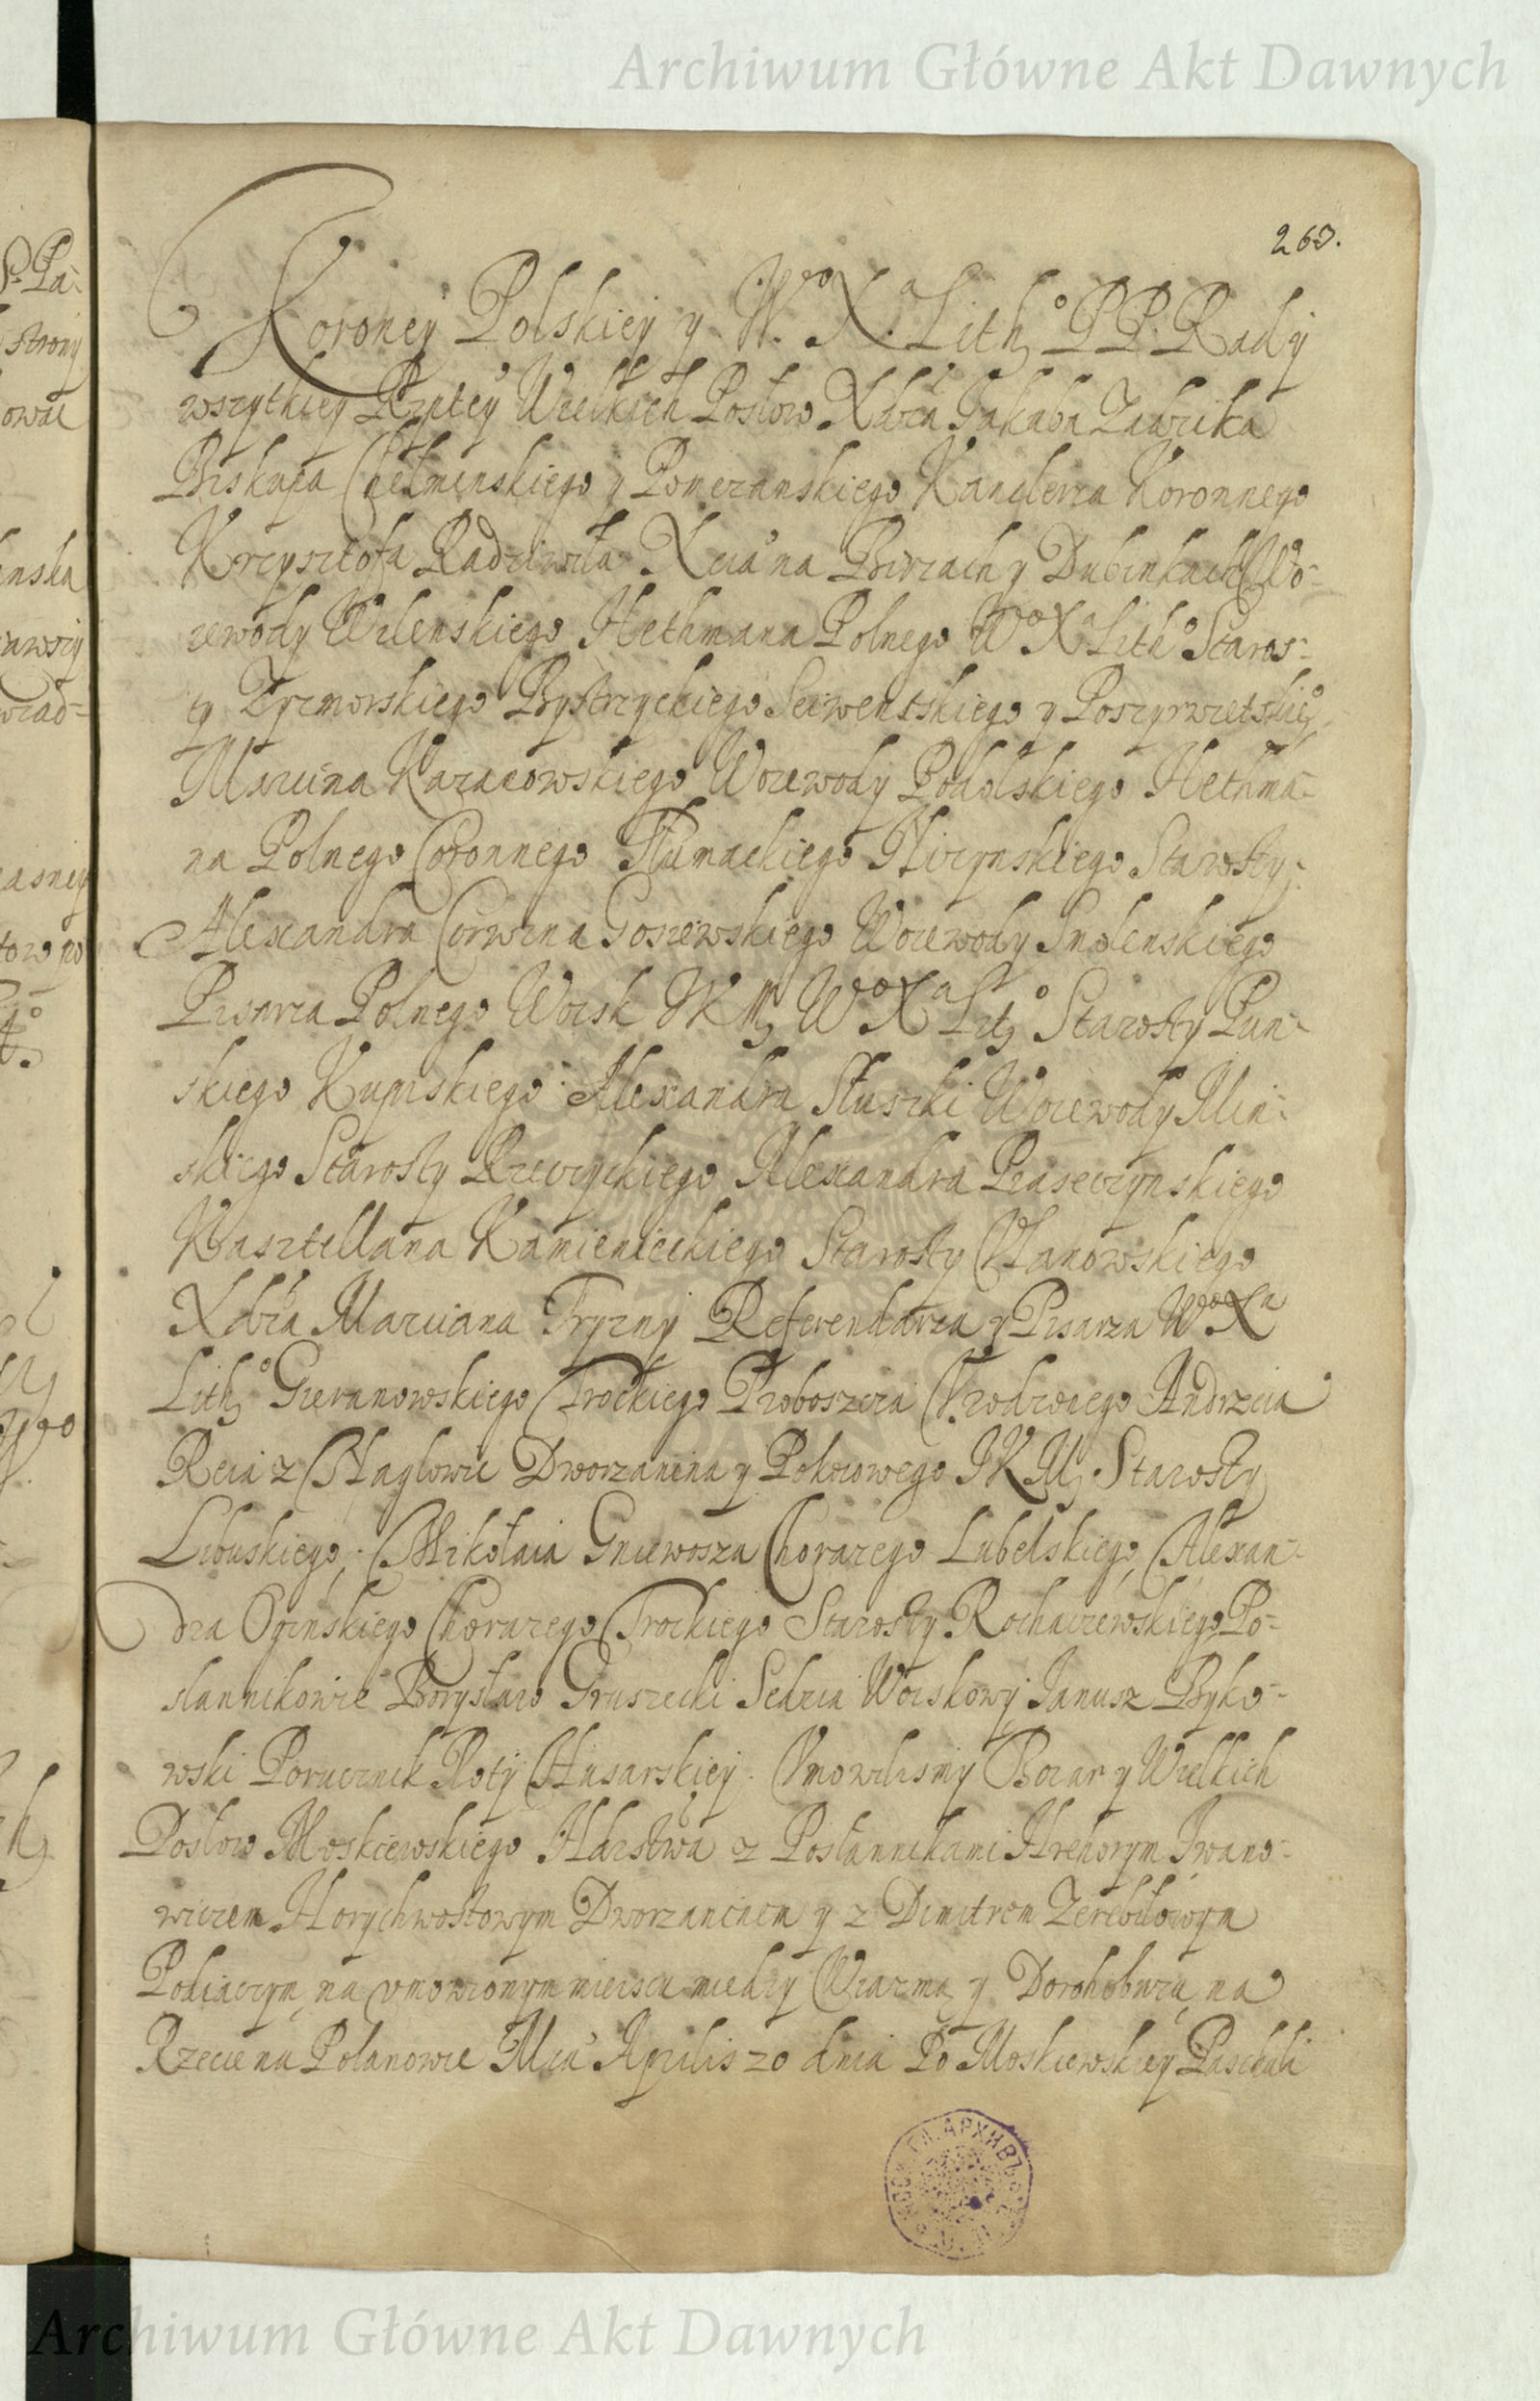 Archiwum Główne Akt Dawnych
260.
Koroney Polskiey y W.º X.ª Lithº PP. Rady
wszytkiey Rzptey Wielkich Posłow Xdza Jakuba Zadzika
Biskupa Chełminskiego y Pomezanskiego Kanclerza Koronnego
Krzysztofa Radziwiła Xcia na Birzach y Dubinkach Wo-
iewody Wilenskiego Hethmana Polnego Wº Xª Lithº Staros-
ty Zyzmorskiego Bystrzyckiego Seiwenskiego y Poszyrwietskieº
Marcina Kazanowskiego Woiewody Podolskiego Hethma-
na Polnego Coronnego Tłumackiego Starosty.
Alexandra Corwina Gosiewskiego Woiewody Smolenskiego
Pisarza Polnego Woisk JKM, Wº Xª Litº Starosty Pun-
skiego Kupiskiego. Alexandra Słuszki Woiewody Min-
skiego Starosty Rzeczyckiego Alexandra Piaseczynskiego
Kasztellana Kamienieckiego Starosty Vlanowskiego
Xdza Marciana Tryzny Referendarza y Pisarza Wº Xª
Lithº Gieranowskiego Trockiego Proboszcza Vrodzonego Andrzeia
Reia z Naglowic Dworzanina y Pokoiowego JKM, Starosty
Libuskiego, Mikołaia Gniewosza Chorazego Lubelskiego, Alexan-
dra Oginskiego Chorazego Trockiego Starosty Rochaczewskiego Po-
słannikowie Borysław Gruszecki Sedzia Woiskowy Janusz Byko-
wski Porucznik Roty Husarskiey. Vmowilismy Boiar y Wielkich
Posłow Moskiewskiego Harstwa z Posłannikami Hrehorym Iwano-
wiczem Horychwostowym Dworzaninem y z Dimitrem
Podiaczym, na vmowionym mieiscu miedzy Wiazmą y Dorohobuzą na
Rzece na Polanowie Mca Aprilis 20 dnia Po Moskiewskiey Paschali
Archiwum Główne Akt Dawnych